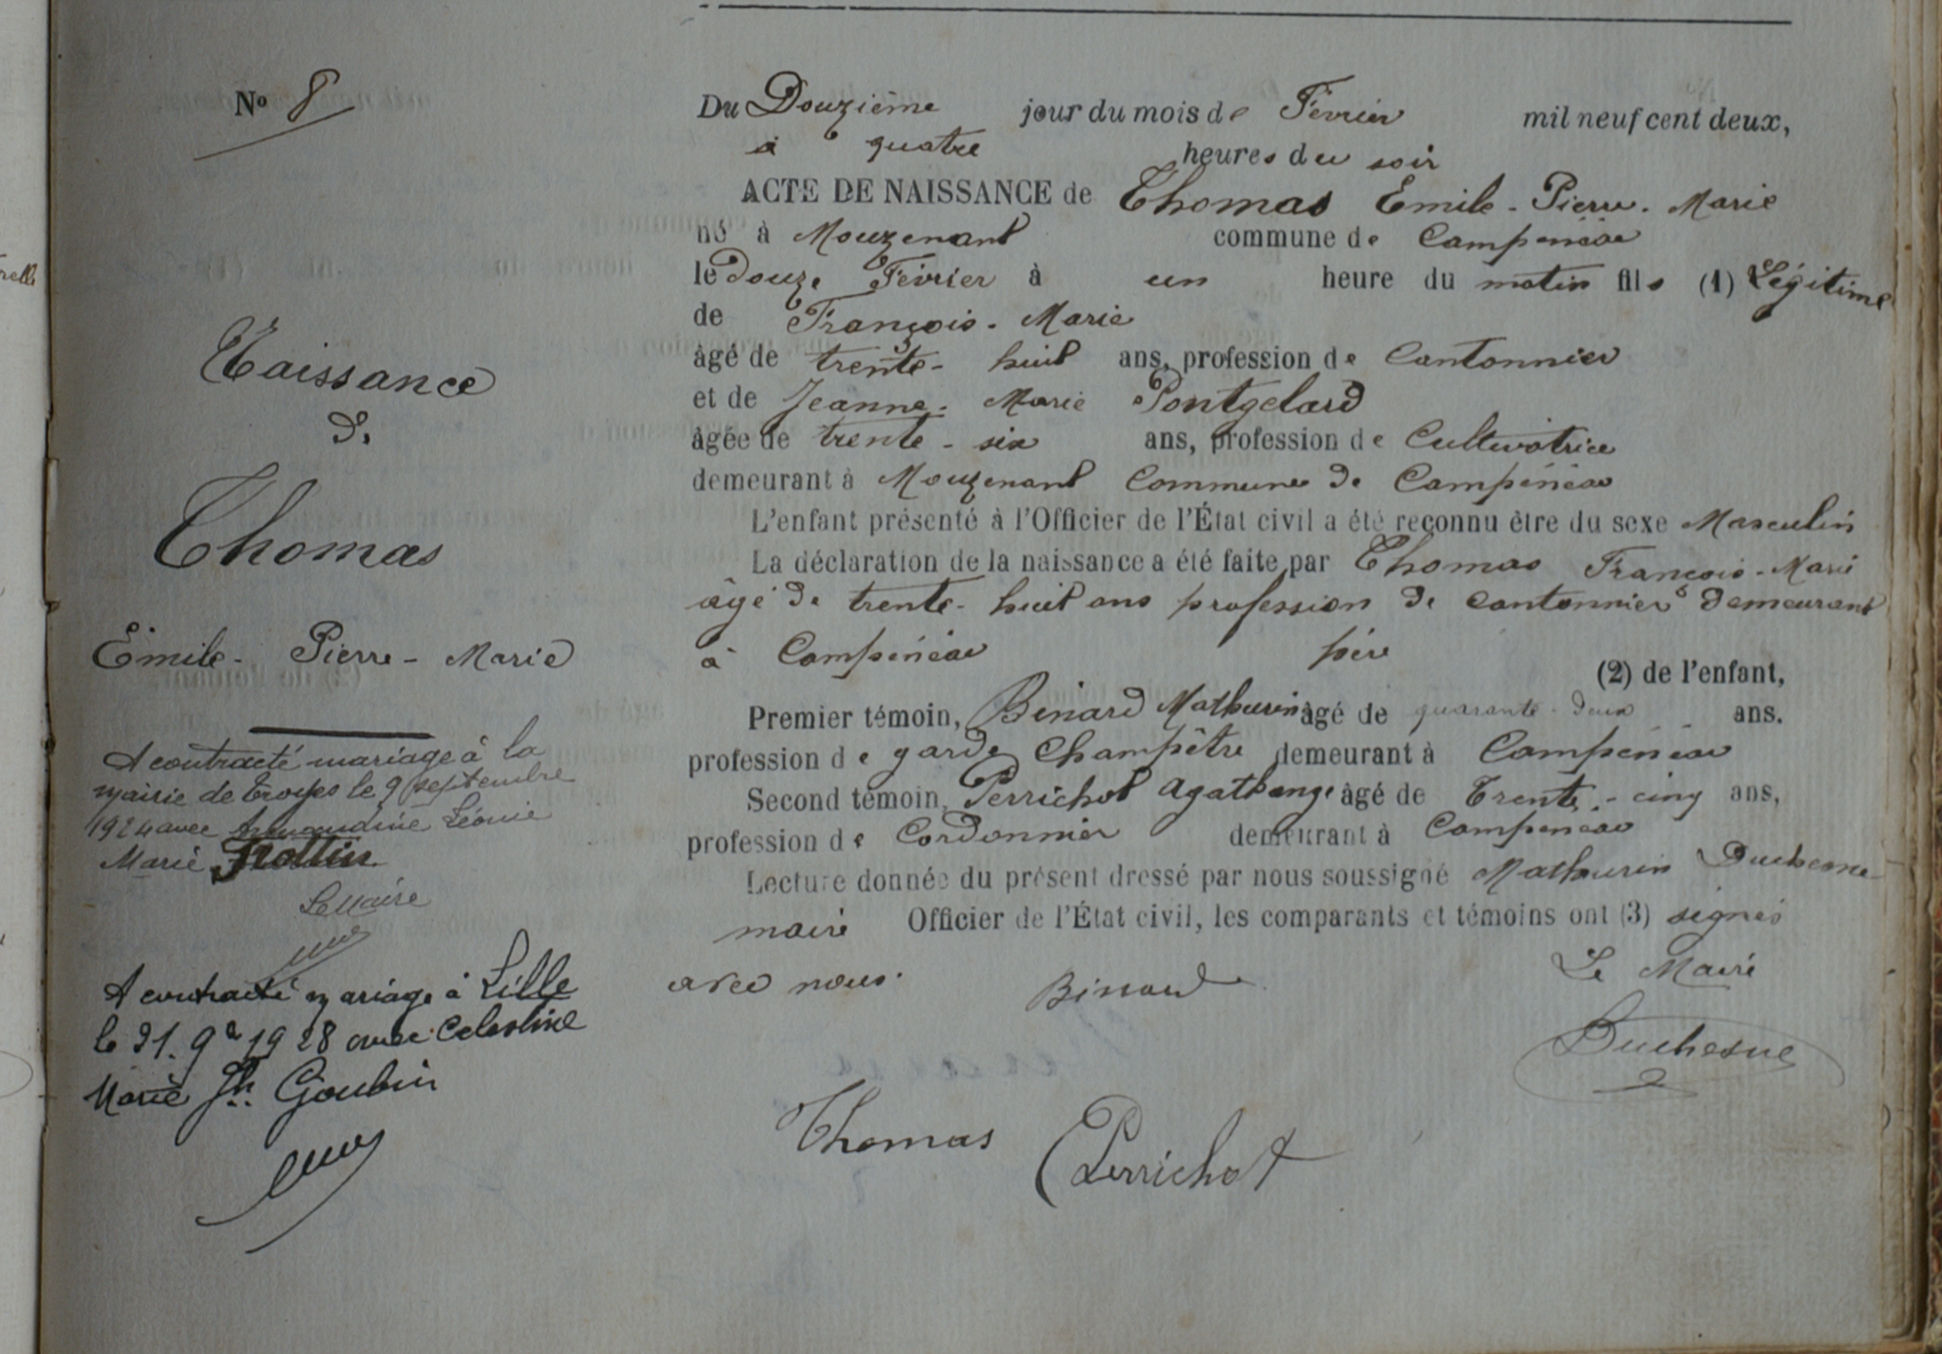 N° 8
Naissance
de
Thomas
Emile - Pierre - Marie
A contracté mariage à la
mairie de Troyes le 9 septembre
1924 avec Léonie
Marie Trottin
Le Maire
A contracté mariage à Lille
le 21. 9re 1928 avec Celestine
Marie Jh. Goubin
Du Douzième jour du mois de Février mil neuf cent deux,
à quatre heures du soir
ACTE DE NAISSANCE de Thomas Emile - Pierre - Marie
né à Mouzenant commune de Campénéac
le douze Février à un heure du matin fils (1) Légitime
de François - Marie
âgé de trente - huit ans, profession de Cantonnier
et de Jeanne - Marie Pontgelard
âgée de trente - six ans, profession de Cultivatrice
demeurant à Mouzenant Commune de Campénéac
L'enfant présenté à l'Officier de l'État civil a été reconnu être du sexe Masculin
La déclaration de la naissance a été faite par Thomas François - Marie
âgé de trente - huit ans profession de cantonnier demeurant
à Campénéac père (2) de l'enfant,
Premier témoin, Binard Mathurin âgé de quarante - deux ans.
profession de garde Champêtre demeurant à Campénéac
Second témoin, Perrichot Agathange âgé de Trente - cinq ans,
profession de Cordonnier demeurant à Campénéac
Lecture donnée du présent dressé par nous soussigné Mathurin Duchesne
maire Officier de l'État civil, les comparants et témoins ont (3) signés
avec nous.
Binard
Le Maire
Duchesne
Thomas
Perrichot